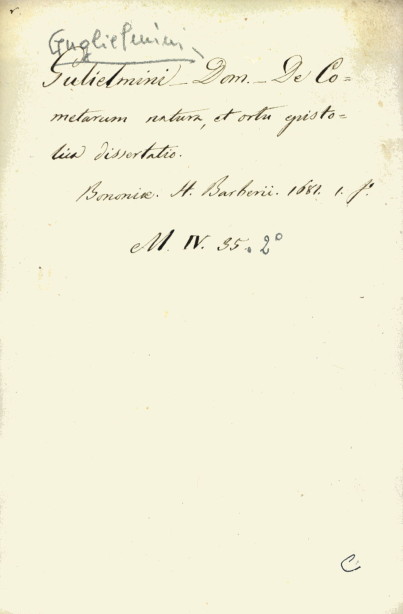 Guglielmini
Gulielmini - Dom. - De Co=
metarum natura, et ortu episto=
lica dissertatio.
Bononiæ. H. Barberii. 1681. 1. fo.
M. IV. 35. 2°
C